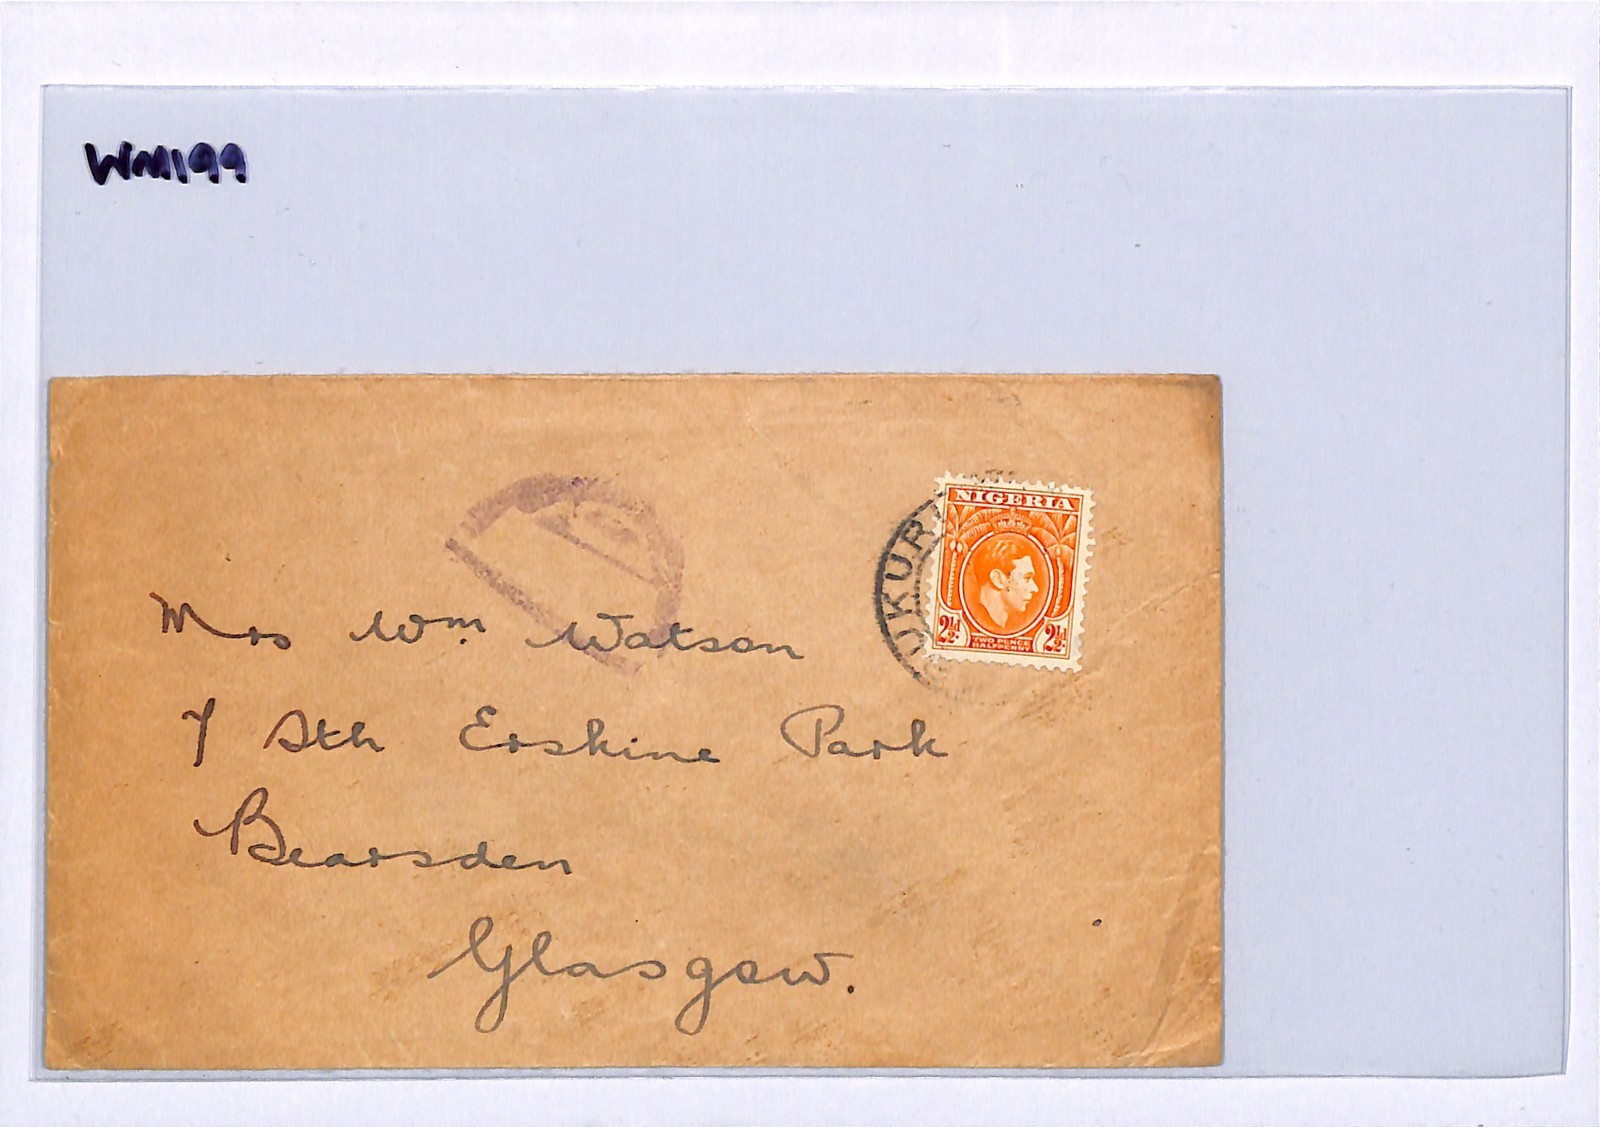 WM199
NIGERIA
2½d.
TWO PENCE
HALFPENNY
2½d.
BUKURU
Mrs Wm Watson
7 Sth Erskine Park
Bearsden
Glasgow.